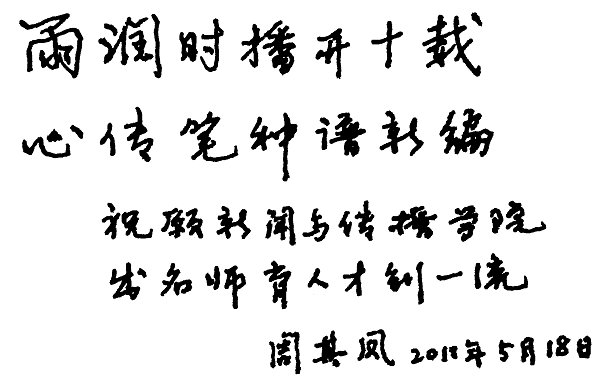 雨润时播开十载
心传笔种谱新编
祝愿新闻与传播学院
出名师育人才创一流
周其凤 2011年5月18日